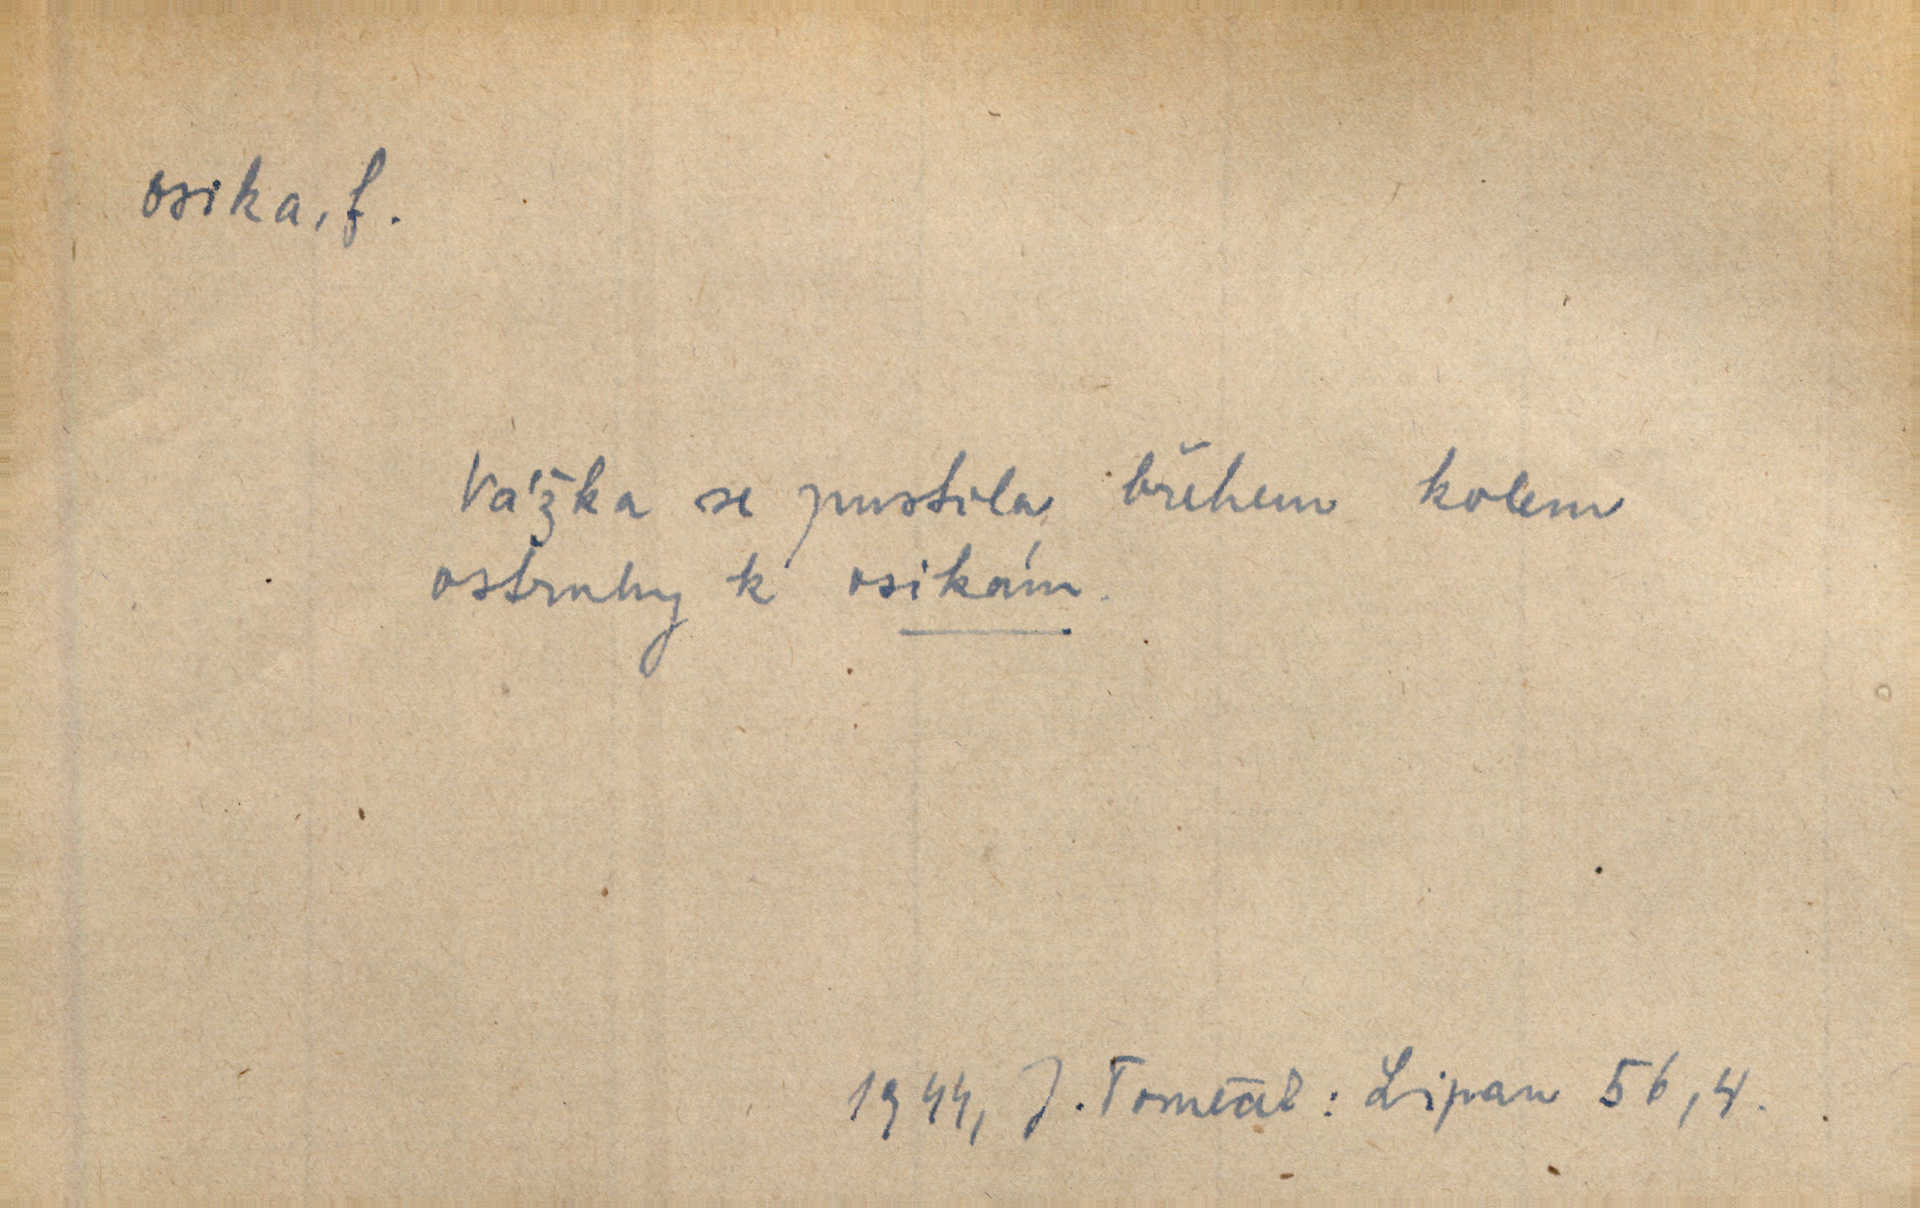 osika, f.
Vážka se pustila břehem kolem
ostruhy k osikám.
1944, J. Tomečal: Lipan 56, 4.